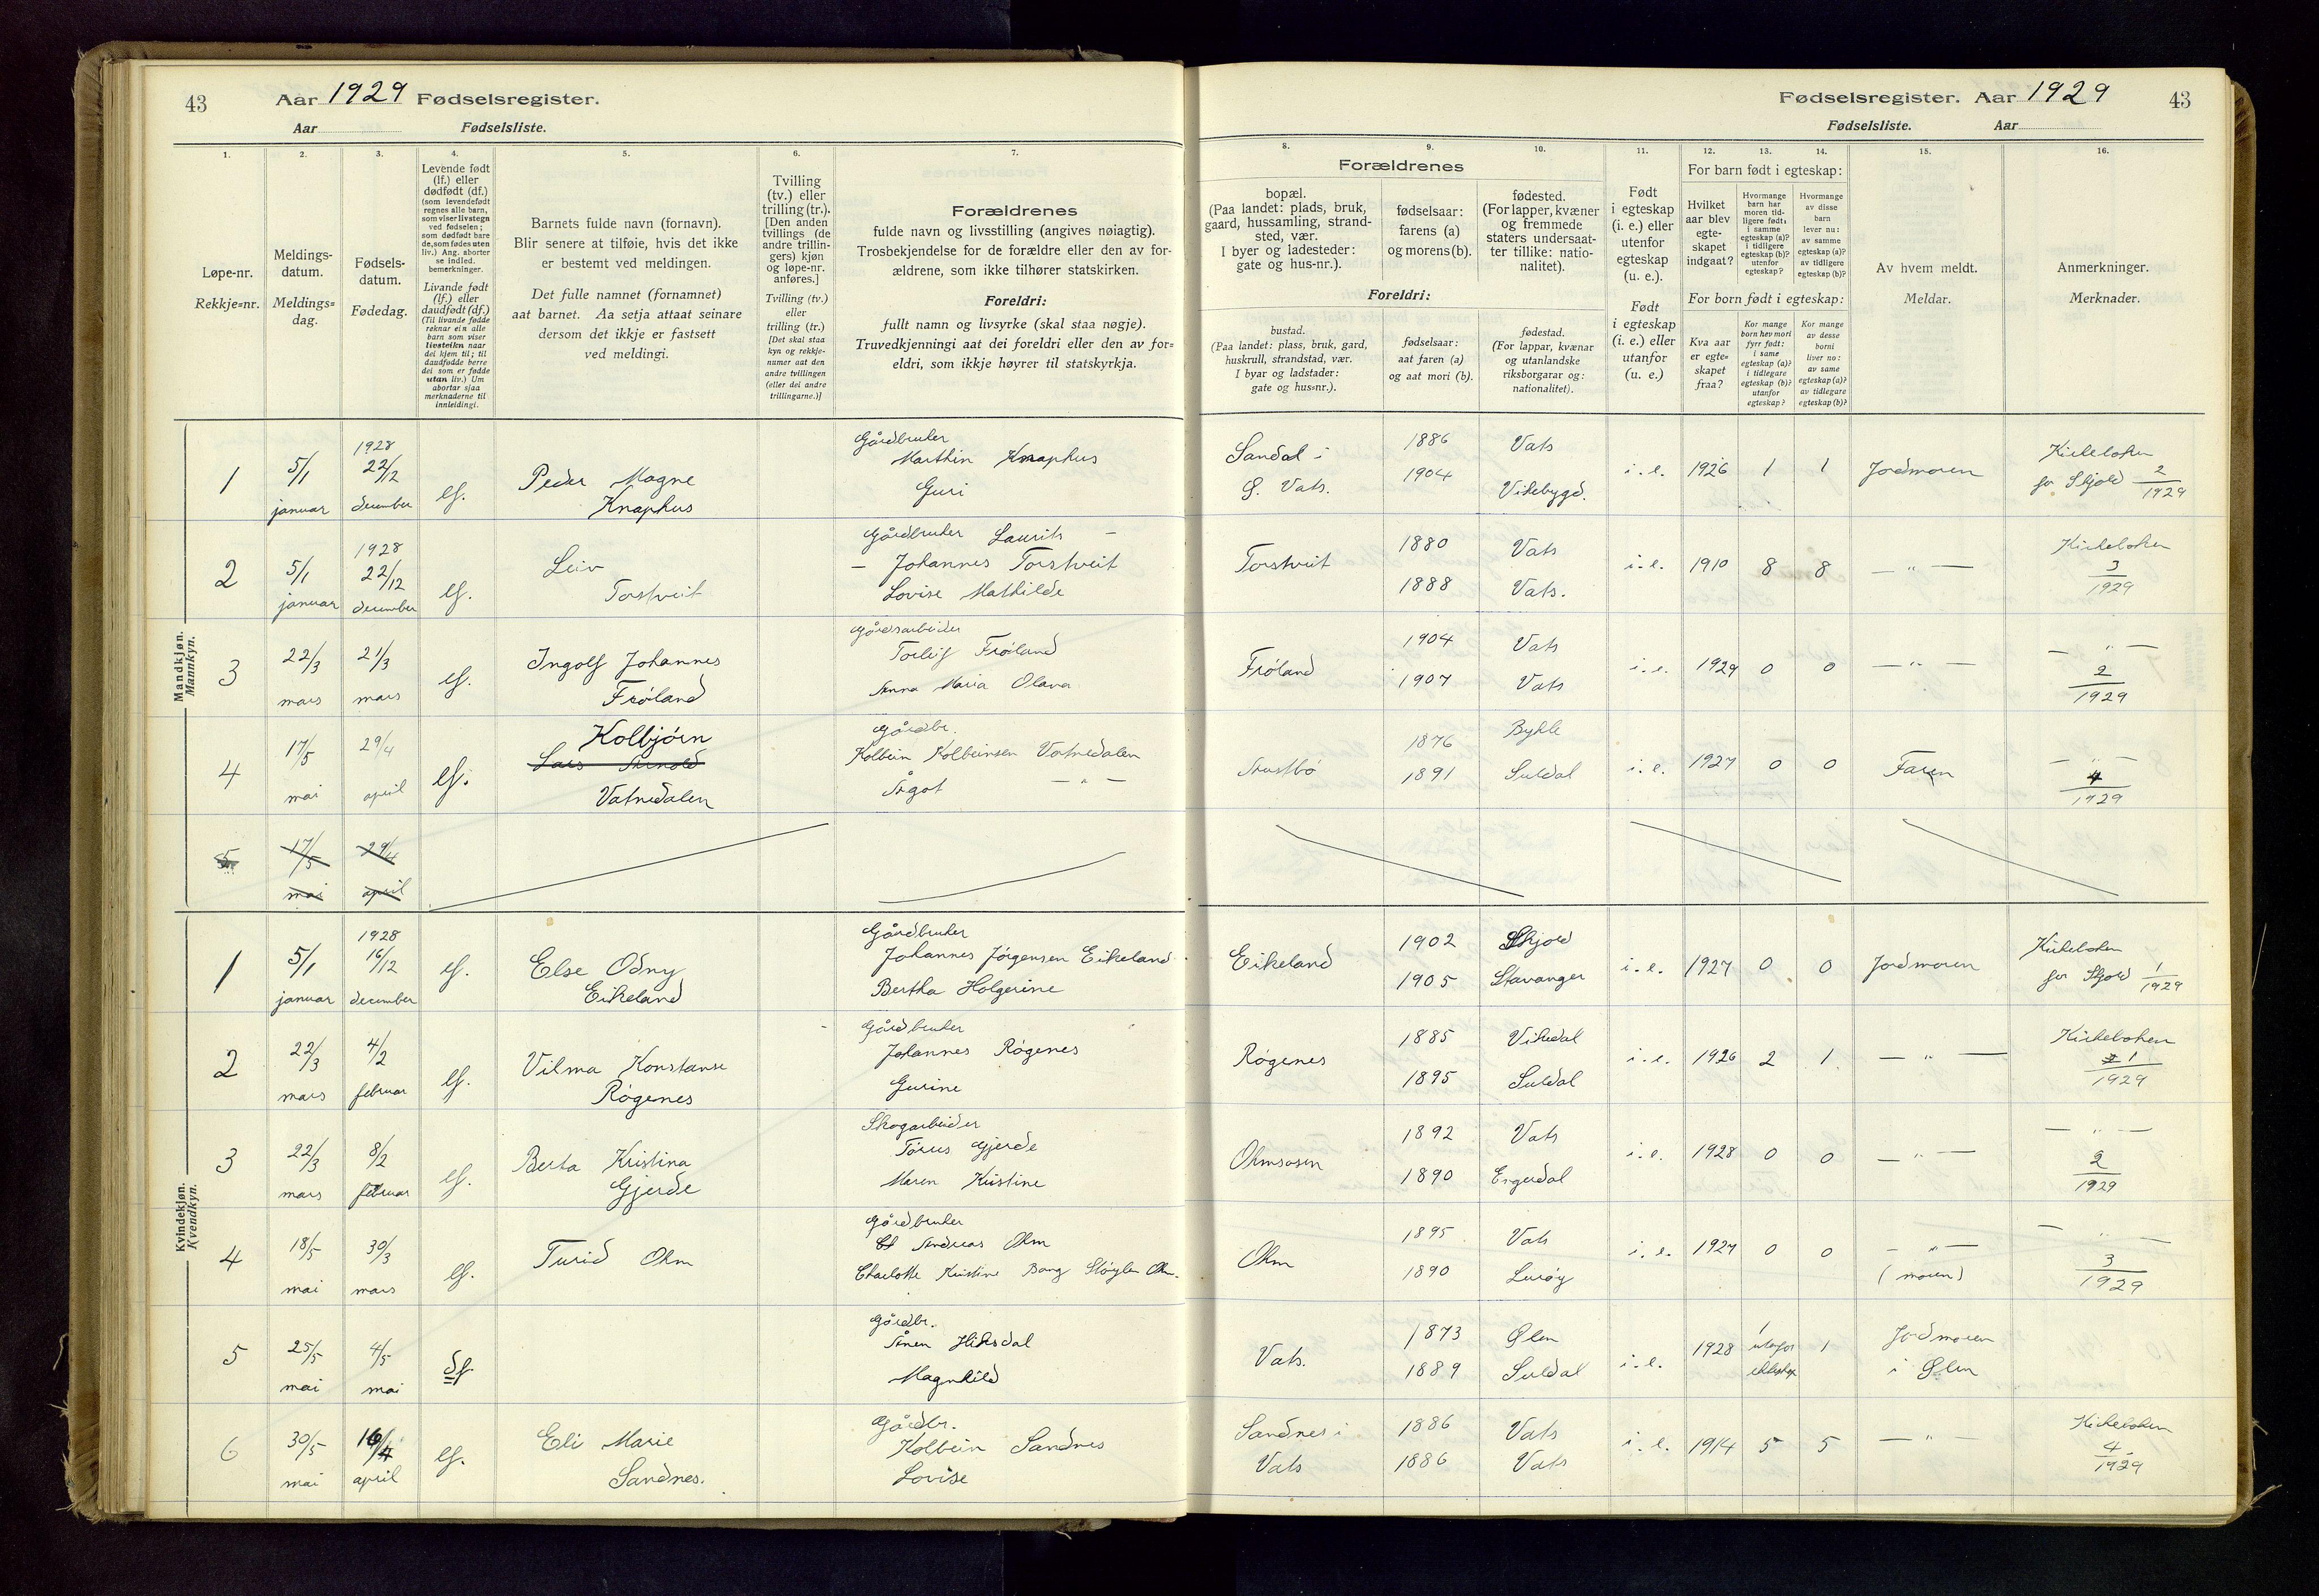 43 Aar 1929 Fødselsregister.
Aar Fødselsliste.
1.
Løpe-nr.
Rekkje=nr.
2.
Meldings-
datum.
Meldings=
dag.
3.
Fødsels-
datum.
Fødedag.
4.
Levende født
(lf.) eller
dødfødt (df.)
(som levendefødt
regnes alle barn,
som viser livstegn
ved fødselen;
som dødfødt bare
de, som fødes uten
liv.) Ang. aborter
se indled.
bemerkninger.
Livande født
(lf.) eller
daudfødt (df.)
(Til livande fødde
reknar ein alle
barn som viser
livsteikn naar
dei kjem til; til
daudfødde berre
dei som er fødde
utan liv.) Um
abortar sjaa
merknaderne til
innleidingi.
5.
Barnets fulde navn (fornavn).
Blir senere at tilføie, hvis det ikke
er bestemt ved meldingen.
Det fulle namnet (fornamnet)
aat barnet. Aa setja attaat seinare
dersom det ikkje er fastsett
ved meldingi.
6.
Tvilling
(tv.) eller
trilling (tr.).
[Den anden
tvillings (de
andre trillin-
gers) kjøn
og løpe-nr.
anføres.]
Tvilling (tv.)
eller
trilling (tr.)
[Det skal staa
kyn og rekkje-
numer aat den
andre tvillingen
(eller dei andre
trillingarne.)]
7.
Forældrenes
fulde navn og livsstilling (angives nøiagtig).
Trosbekjendelse for de forældre eller den av for-
ældrene, som ikke tilhører statskirken.
Foreldri:
fullt namn og livsyrke (skal staa nøgje).
Truvedkjenningi aat dei foreldri eller den av for=
eldri, som ikkje høyrer til statskyrkja.
Mandkjøn.
Mannkyn.
1 5/1 januar 1928 22/12 december lf. Peder Magne Knaphus
Gårdbruker
Marthin Knaphus
Guri
2 5/1 januar 1928 22/12 december lf. Leiv Torstveit
Gårdbruker Laurits –
– Johannes Torstveit
Lovise Mathilde
3 22/3 mars 21/3 mars lf. Ingolf Johannes Frøland
Gårdsarbeider
Torleif Frøland
Anna Maria Olava
4 17/5 mai 29/4 april lf. Kolbjørn
Lars Arnold
Vatnedalen
Gårdbr.
Kolbein Kolbeinsen Vatnedalen
Ågot — " —
5 17/5 mai 29/4 april
Kvindekjøn.
Kvendkyn.
1 5/1 januar 1928 16/12 december lf. Else Odny Eikeland
Gårdbruker
Johannes Jørgensen Eikeland
Bertha Holgerine
2 22/3 mars 4/2 februar lf. Vilma Konstanse Røgenes
Gårdbruker
Johannes Røgenes
Gurine
3 22/3 mars 8/2 februar lf. Berta Kristina Gjerde
Skogarbeider
Tørres Gjerde
Maren Kristine
4 18/5 mai 30/3 mars lf. Turid Ohm
Gårdbruker
Andreas Ohm
Charlotte Kristine Bang Støylen Ohm.
5 25/5 mai 4/5 mai df.
Gårdbr.
Ånen Hiksdal
Magnhild
6 30/5 mai 16/4 april lf. Eli Marie Sandnes.
Gårdbr.
Kolbein Sandnes
Lovise
Fødselsregister. Aar 1929 43
Fødselsliste. Aar
8.
Forældrenes
bopæl.
(Paa landet: plads, bruk,
gaard, hussamling, strand-
sted, vær.
I byer og ladesteder:
gate og hus-nr.).
Foreldri:
bustad.
(Paa landet: plass, bruk, gard,
huskrull, strandstad, vær.
I byar og ladstader:
gate og hus=nr.).
9.
fødselsaar:
farens (a)
og morens (b).
fødselsaar:
aat faren (a)
og aat mori (b).
10.
fødested.
(For lapper, kvæner
og fremmede
staters undersaat-
ter tillike: natio-
nalitet).
fødestad.
(For lappar, kvænar
og utanlandske
riksborgarar og:
nationalitet).
11.
Født
i egteskap
(i. e.) eller
utenfor
egteskap
(u. e.).
Født
i egteskap
(i. e.) eller
utanfor
egteskap
(u. e.)
12. 13. 14.
For barn født i egteskap:
Hvilket
aar blev
egte-
skapet
indgaat?
Hvormange
barn har
moren tid-
ligere født:
i samme
egteskap (a)?
i tidligere
egteskap (b)?
utenfor
egteskap?
Hvormange
av disse
barn
lever nu:
av samme
egteskap (a)?
av tidligere
egteskap (b)?
For born født i egteskap:
Kva aar
er egte=
skapet
fraa?
Kor mange
born hev mori
fyrr født:
i same
egteskap (a)?
i tidlegare
egteskap (b)?
utanfor
egteskap?
Kor mange
av desse
borni
liver no:
av same
egteskap (a)?
av tidlegare
egteskap (b)?
15.
Av hvem meldt.
Meldar.
16.
Anmerkninger.
Merknader.
Sandal i Ø. Vats. 1886 1904 Vats Vikebygd. i. e. 1926 1 1 Jordmoren Kirkeboken for Skjold 2/1929
Torstveit 1880 1888 Vats Vats. i. e. 1910 8 8 — " — Kirkeboken 3/1929
Frøland 1904 1907 Vats Vats i. e. 1929 0 0 — " — — " — 2/1929
1876 1891 Bykle Suldal i. e. 1927 0 0 Faren — " — 4/1929
Eikeland 1902 1905 Skjold Stavanger i. e. 1927 0 0 Jordmoren Kirkeboken for Skjold 1/1929
Røgenes 1885 1895 Vikedal Suldal i. e. 1926 2 1 — " — Kirkeboken 1/1929
1892 1890 Vats i. e. 1928 0 0 — " — — " — 2/1929
Ohm 1895 1890 Vats Lurøy i. e. 1927 0 0 — " — (moren) — " — 3/1929
Vats. 1873 1889 Ølen Suldal i. e. 1928 1 utafor 1 Jordmoren i Ølen
Sandnes i Vats 1886 1886 Vats Vats i. e. 1914 5 5 — " — Kirkeboken 4/1929